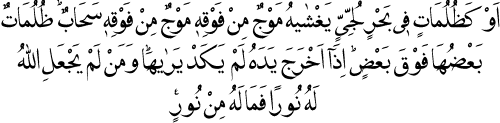 اَوْ كَظُلُمَاتٍ فٖى بَحْرٍ لُجِّىٍّ يَغْشٰيهُ مَوْجٌ مِنْ فَوْقِهٖ مَوْجٌ مِنْ فَوْقِهٖ سَحَابٌ ظُلُمَاتٌ
بَعْضُهَا فَوْقَ بَعْضٍ اِذَٓا اَخْرَجَ يَدَهُ لَمْ يَكَدْ يَرٰيهَا وَمَنْ لَمْ يَجْعَلِ اللّٰهُ
لَهُ نُورًا فَمَا لَهُ مِنْ نُورٍ